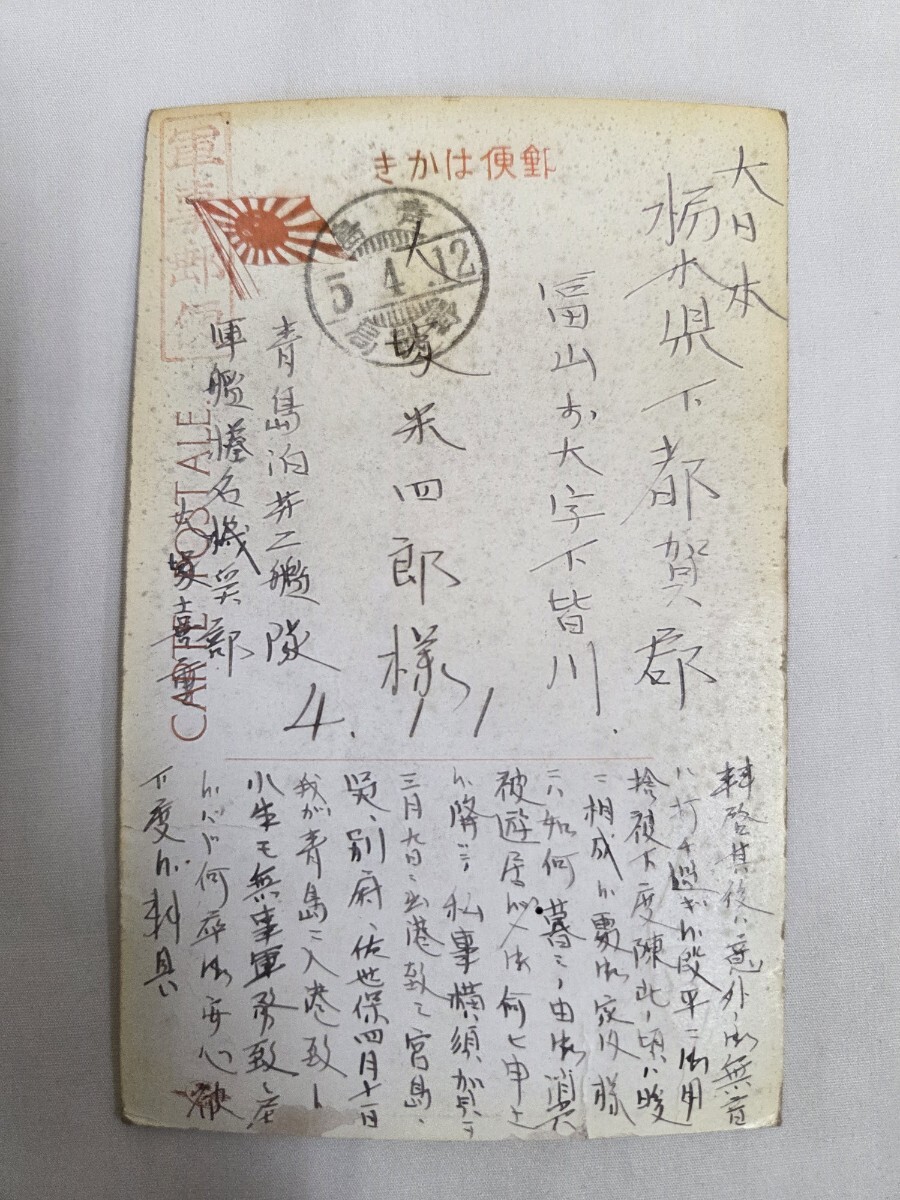 郵便はかき
軍事郵便
CARTE POSTALE
青島
5.4.12
大日本
栃木県下都賀郡
富山村大字下皆川
大塚米四郎様
4.11
青島泊第二艦隊
軍艦榛名機関部
大塚喜
拝啓其後ハ意外ノ御無音
ニ打チ過ギ候段平ニ御用
捨被下度陳此ノ頃ハ暖
ニ相成候處御家族様
ニハ如何
被遊居候ヤ御伺ヒ申上
候降テ私事横須賀ヲ
三月九日ニ出港致シ宮島、
呉、別府、佐世保四月十一日
我ガ青島ニ入港致シ
小生モ無事軍務致シ居
候ヘバ何卒御安心被
下度候 敬具